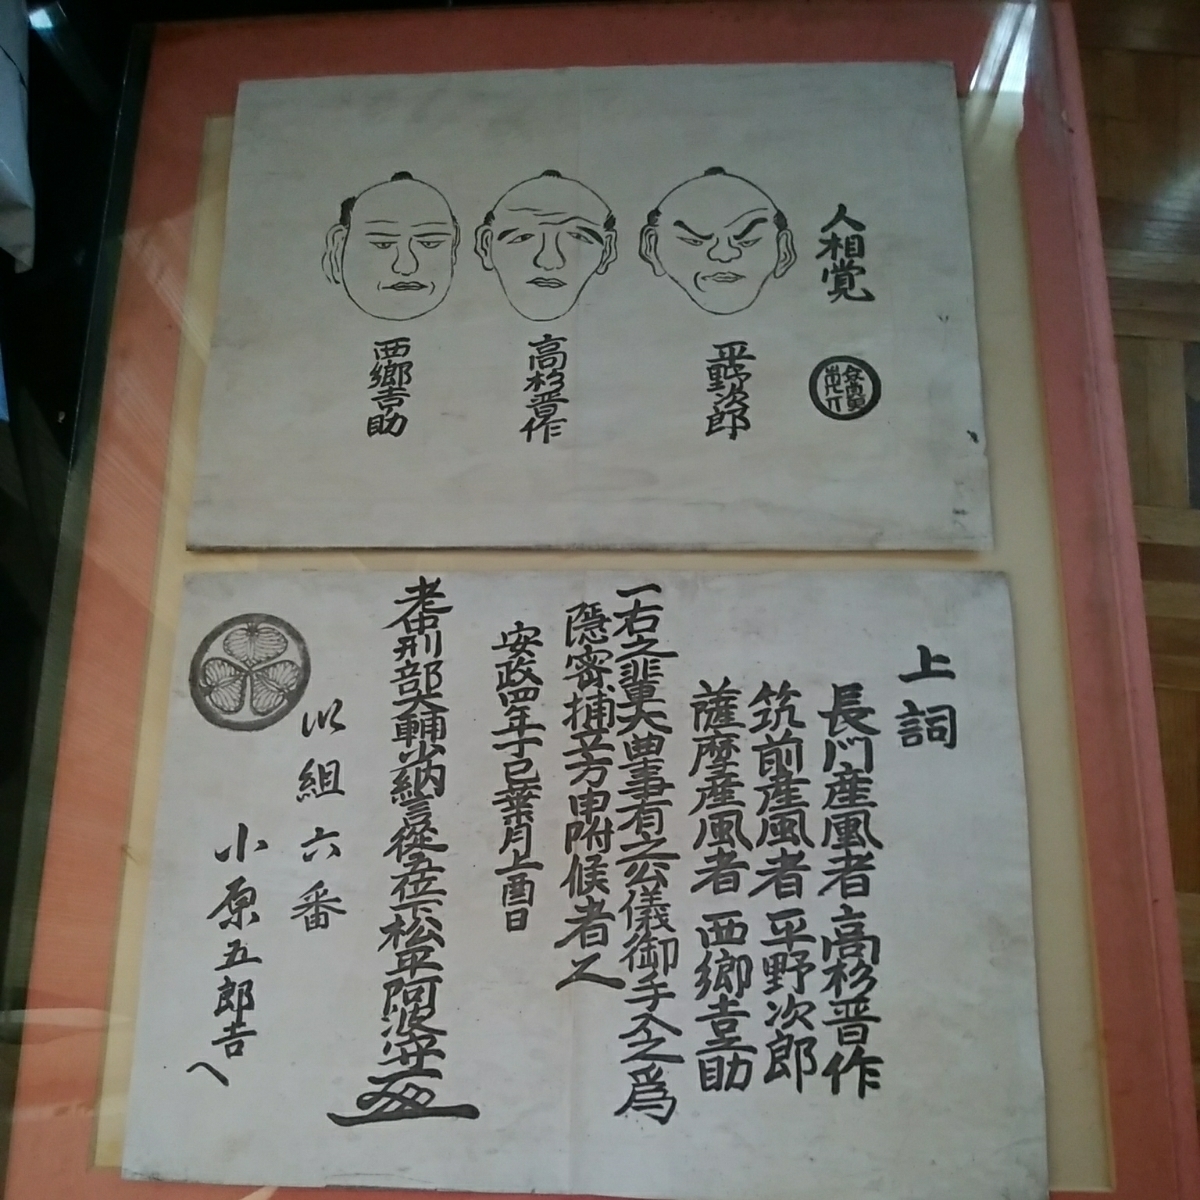 人相覚
平野次郎
高杉晋作
西郷吉助
上詞
長门産風者 高杉晋作
筑前産風者 平野次郎
薩摩産風者 西郷吉助
一右之輩大曲事有之公儀御手入之爲
隠密捕芳申附候者又
安政四年丁巳葉月上酉日
老中刑部大輔少納言從五位下松平阿波守
以組六番
小原五郎吉へ